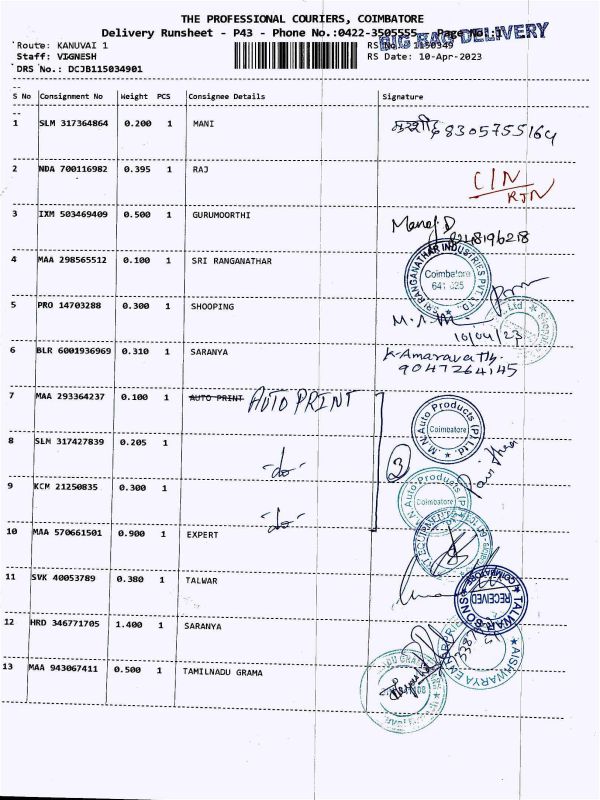 THE PROFESSIONAL COURIERS, COIMBATORE
Delivery Runsheet - P43 - Phone No.:0422-3505555 Page No.:1
BIG BAG DELIVERY
Route: KANUVAI 1 RS No.: 1150349
Staff: VIGNESH RS Date: 10-Apr-2023
DRS No.: DCJB115034901
S No Consignment No Weight PCS Consignee Details Signature
1 SLM 317364864 0.200 1 MANI 6830575516
2 NDA 700116982 0.395 1 RAJ C/N RTN
3 IXM 503469409 0.500 1 GURUMOORTHI Manoj.D
8218196218
4 MAA 298565512 0.100 1 SRI RANGANATHAR
SRI RANGANATHAR INDUSTRIES PVT. LTD.
Coimbatore
5 PRO 14703288 0.300 1 SHOOPING
10/04/23
6 BLR 6001936969 0.310 1 SARANYA K-Amaravathy.
9047264145
7 MAA 293364237 0.100 1 AUTO PRINT AUTO PRINT
M.N. Auto Products (P) Ltd.
Coimbatore
8 SLM 317427839 0.205 1 -do- 3
Pavithra
9 KCM 21250835 0.300 1 -do-
M.N. Auto Products (P)
Coimbatore
10 MAA 570661501 0.900 1 EXPERT
11 SVK 40053789 0.380 1 TALWAR
TALWAR SONS
RECEIVED
COIMBATORE
12 HRD 346771705 1.400 1 SARANYA
AISHWARYA
13 MAA 943067411 0.500 1 TAMILNADU GRAMA